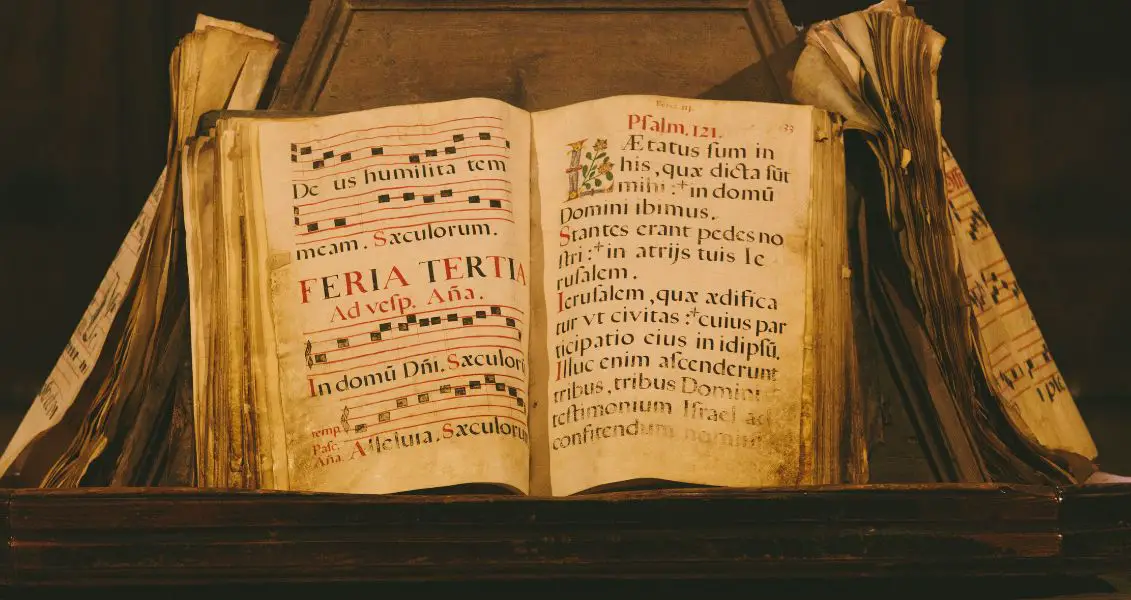 De us humilita tem
meam. Sæculorum.
FERIA TERTIA
Ad vesp. Aña.
In domũ Dñi. Sæculoru
temp.
Pasc.
Aña. Alleluia. Sæculorum
Feria iij.
Psalm. 121.
133
LÆtatus sum in
his, quæ dicta sũt
mihi :⁺in domũ
Domini ibimus.
Stantes erant pedes no
stri :⁺in atrijs tuis Ie
rusalem.
Ierusalem, quæ ædifica
tur vt civitas :⁺cuius par
ticipatio eius in idipsũ.
Illuc enim ascenderunt
tribus, tribus Domini
testimonium Israel ad
confitendum nomini